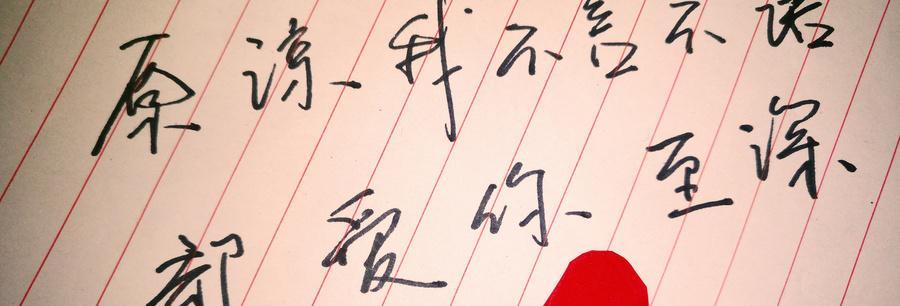 原谅我不言不诺
都你至深